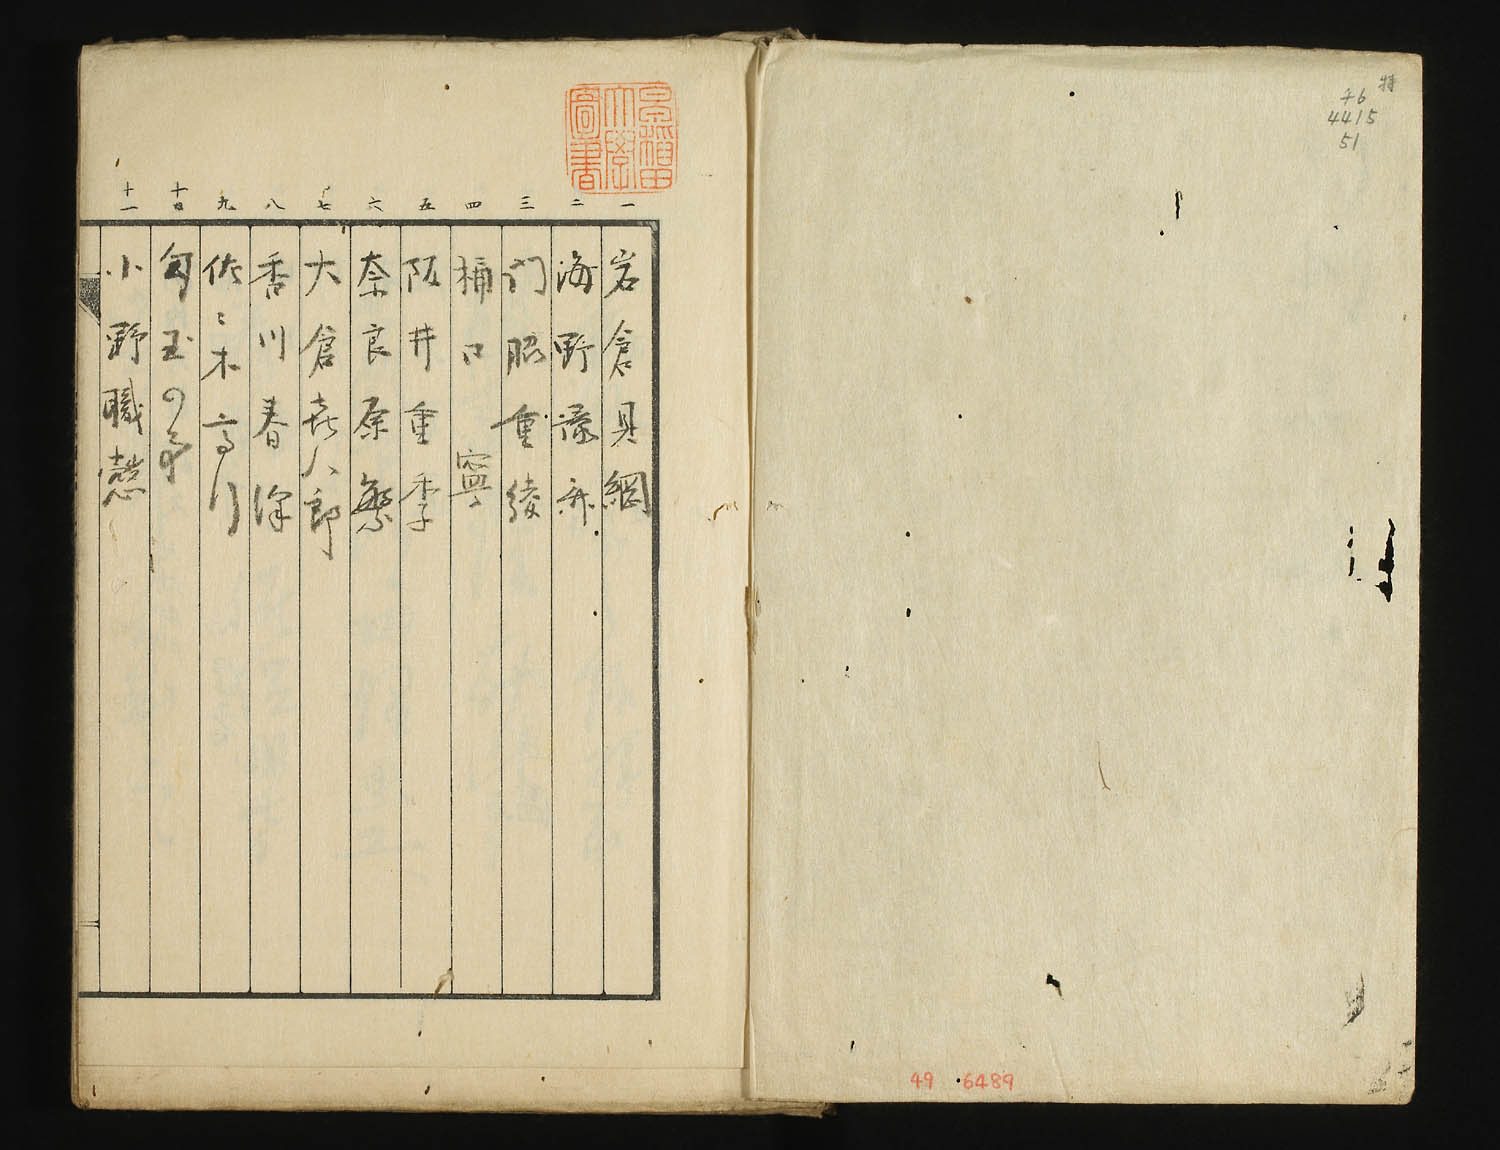 特
イ6
4415
51
49 6489
早稲田
大學
圖書
一 岩倉具綱
二 海野
三 門脇重綾
四 樋口 寧
五 阪井重季
六 奈良原繁
七 大倉喜八郎
八 香川春
九 佐々木高行
十 児玉
十一 小野職愨